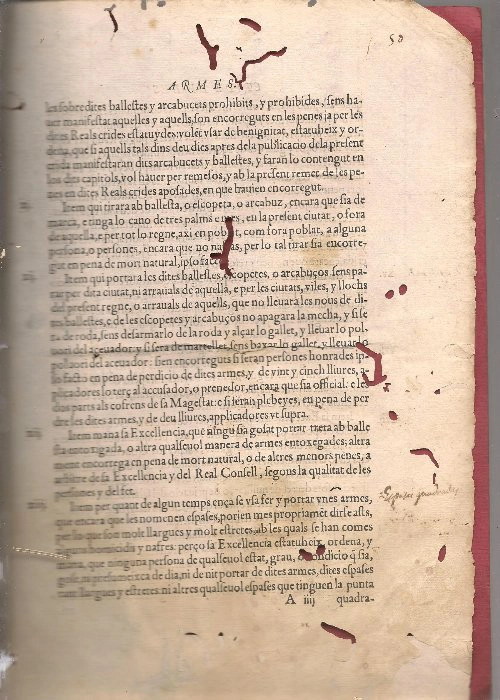 50
ARMES.
les sobredites ballestes y arcabucets prohibits, y prohibides, sens ha-
uer manifestat aquelles y aquells, son encorreguts en les penes ja per les
dites Reals crides estatuydes: volēt vsar de benignitat, estatueix y or-
dena, que si aquells tals dins deu dies apres dela publicacio dela present
crida manifestaran dits arcabucets y ballestes, y faran lo contengut en
los dits capitols, vol hauer per remesos, y ab la present remet de les pe-
nes en dites Reals crides aposades, en que hauien encorregut.
Item qui tirara ab ballesta, o escopeta, o arcabuz, encara que sia de
marca, e tinga lo cano de tres palms e mes, en la present ciutat, o fora
de aquella, e per tot lo regne, axi en poblat, com fora poblat, a alguna
persona, o persones, encara que no nafras, per lo tal tirar sia encorre-
gut en pena de mort natural, ipso facto.
Item qui portara les dites ballestes, escopetes, o arcabuços sens pa-
rar per dita ciutat, ni arrauals de aquella, e per les ciutats, viles, y llochs
del present regne, o arrauals de aquells, que no lleuara les nous de di-
tes ballestes, e de les escopetes y arcabuços no apagara la metha, y si se
de roda, sens desarmarlo de la roda y alçar lo gallet, y lleuar lo pol-
uori del aceuador: y si sera de martellet, sens baxar lo gallet, y lleuar lo
poluori del aceuador: sien encorreguts si seran persones honrades ip-
so facto en pena de perdicio de dites armes, y de vint y cinch lliures, a-
plicadores lo terç al accusador, o prenedor, encara que sia official: e les
dos parts als cofrens de sa Magestat: e si seran plebeyes, en pena de per
dre les dites armes, y de deu lliures, applicadores vt supra.
Item mana sa Excellencia, que ningu sia gosat portar treta ab balle
sta entoxigada, o altra qualseuol manera de armes entoxegades; altra
ment encorrega en pena de mort natural, o de altres menors penes, a
arbitre de sa Excellencia y del Real Consell, segons la qualitat de les
persones y del fet.
Item per quant de algun temps ença se vsa fer y portar vnes armes,
que encara que les nomenen espases, porien mes propriamēt dirse asts,
per lo que son molt llargues y molt estretes, ab les quals se han comes
homicidis y nafres: perço sa Excellencia estatueix, ordena, y
que ninguna persona de qualseuol estat, grau, o condicio q̄ sia,
gose, ni presumeixca de dia, ni de nit portar de dites armes, dites espases
tant llargues y estretes: ni altres qualseuol espases que tinguen la punta
A iiij quadra-
Espases quadrades